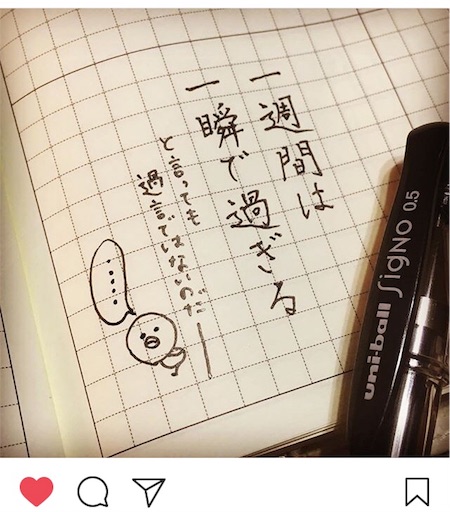 一週間は
一瞬で過ぎる
と言っても
過言ではないのだ――
・・・・・
uni-ball SigNo 0.5